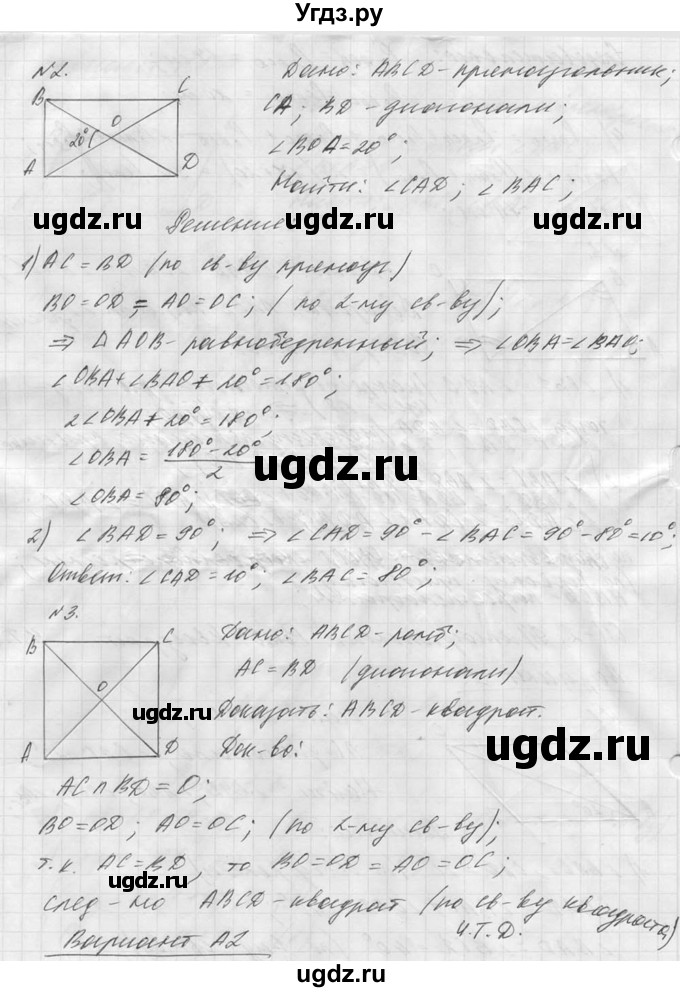 Угдз.ру
№2.
Дано: ABCD-прямоугольник;
B C
CA; BD-диагонали;
O
20°
∠BOA=20°;
A D
Найти: ∠CAD; ∠BAC;
ugdz.ru ugdz.ru ugdz.ru
Решение
1) AC=BD (по св-ву прямоуг)
BO=OD; =AO=OC; (по 2-му св-ву);
⇒ △AOB-равнобедренный; ⇒ ∠OBA=∠BAO;
∠OBA+∠BAO+20°=180°;
2∠OBA+20°=180°;
∠OBA = (180°-20°)/2
ugdz.ru
∠OBA=80°;
2) ∠BAD=90°; ⇒ ∠CAD=90°-∠BAC=90°-80°=10°;
Ответ: ∠CAD=10°; ∠BAC=80°;
№3.
Дано: ABCD-ромб;
B C
AC=BD (диагонали)
O
ugdz.ru ugdz.ru
Доказать: ABCD-квадрат.
A D
Док-во:
ugdz.ru
AC∩BD=O;
BO=OD; AO=OC; (по 2-му св-ву);
ugdz.ru ugdz.ru ugdz.ru
т.к. AC=BD, то BO=OD=AO=OC;
след-но ABCD-квадрат (по св-ву квадрата)
Ч.Т.Д.
Вариант А2
ugdz.ru